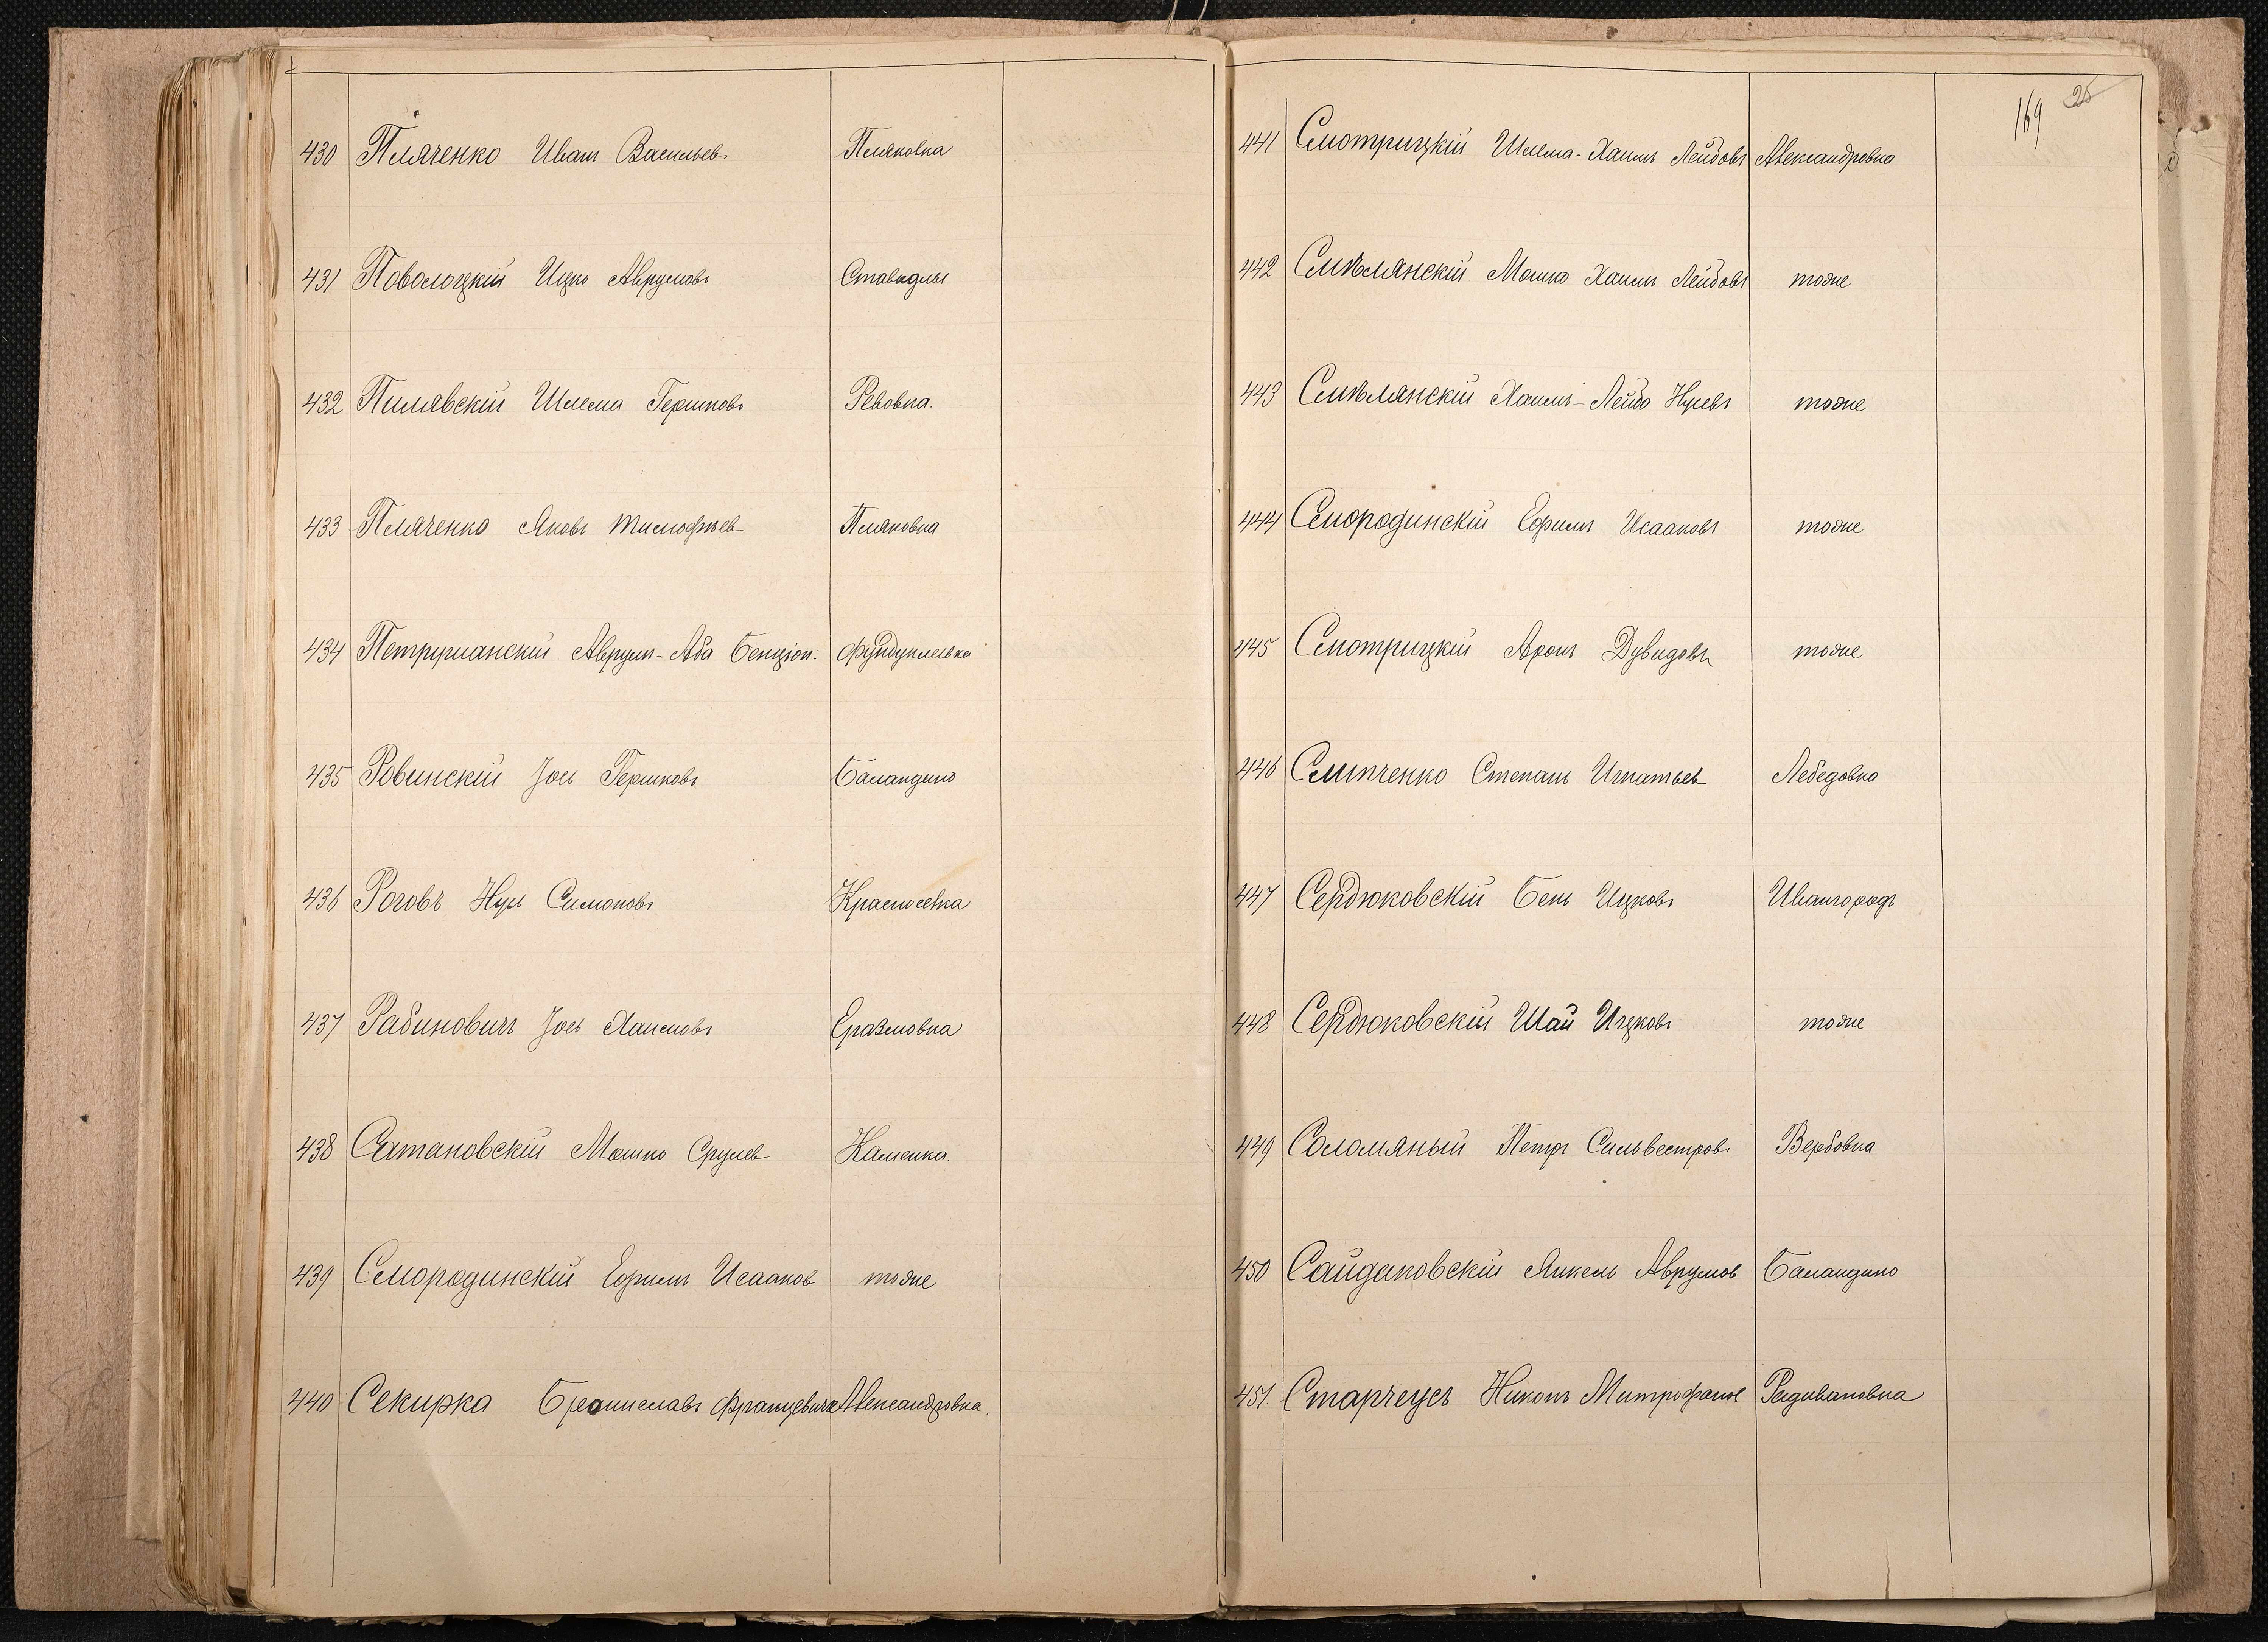 430 Пляченко Иванъ Васильев. Пляковка
431 Поволоцкій Ицко Аврумовъ Ставидлы
432 Пилявскій Шлема Гершковъ Ревовка.
433 Пляченко Яковъ Тимофѣев Пляковка
434 Петрушанскій Аврум-Аба Бенціон. Фундуклеевка
435 Ровинскій Іось Гершковъ Баландино
436 Роговъ Нуль Симоновъ Красносёлка
437 Рабиновичъ Іось Хаимовъ Еразмовка
438 Сатановскій Мошко Срулев Каменка.
439 Смородинскій Ефримъ Исааков тоже
440 Секирка Брониславъ Францевичъ Александровка.
169 25
441 Смотрицкій Шлема-Хаимъ Лейбовъ Александровка
442 Смѣлянскій Мошко Хаимъ Лейбовъ тоже
443 Смѣлянскій Хаимъ-Лейбо Нусевъ тоже
444 Смородинскій Ефримъ Исааковъ тоже
445 Смотрицкій Аронъ Дувидовъ тоже
446 Степанъ Игнатьев Лебедовка
447 Сердюковскій Бень Ицковъ Ивангородъ
448 Сердюковскій Шай Ицковъ тоже
449 Соломяный Петръ Сильвестров. Вербовка
450 Сайдаковскій Янкель Аврумов Баландино
451. Старчеусъ Никонъ Митрофанов Радивановка